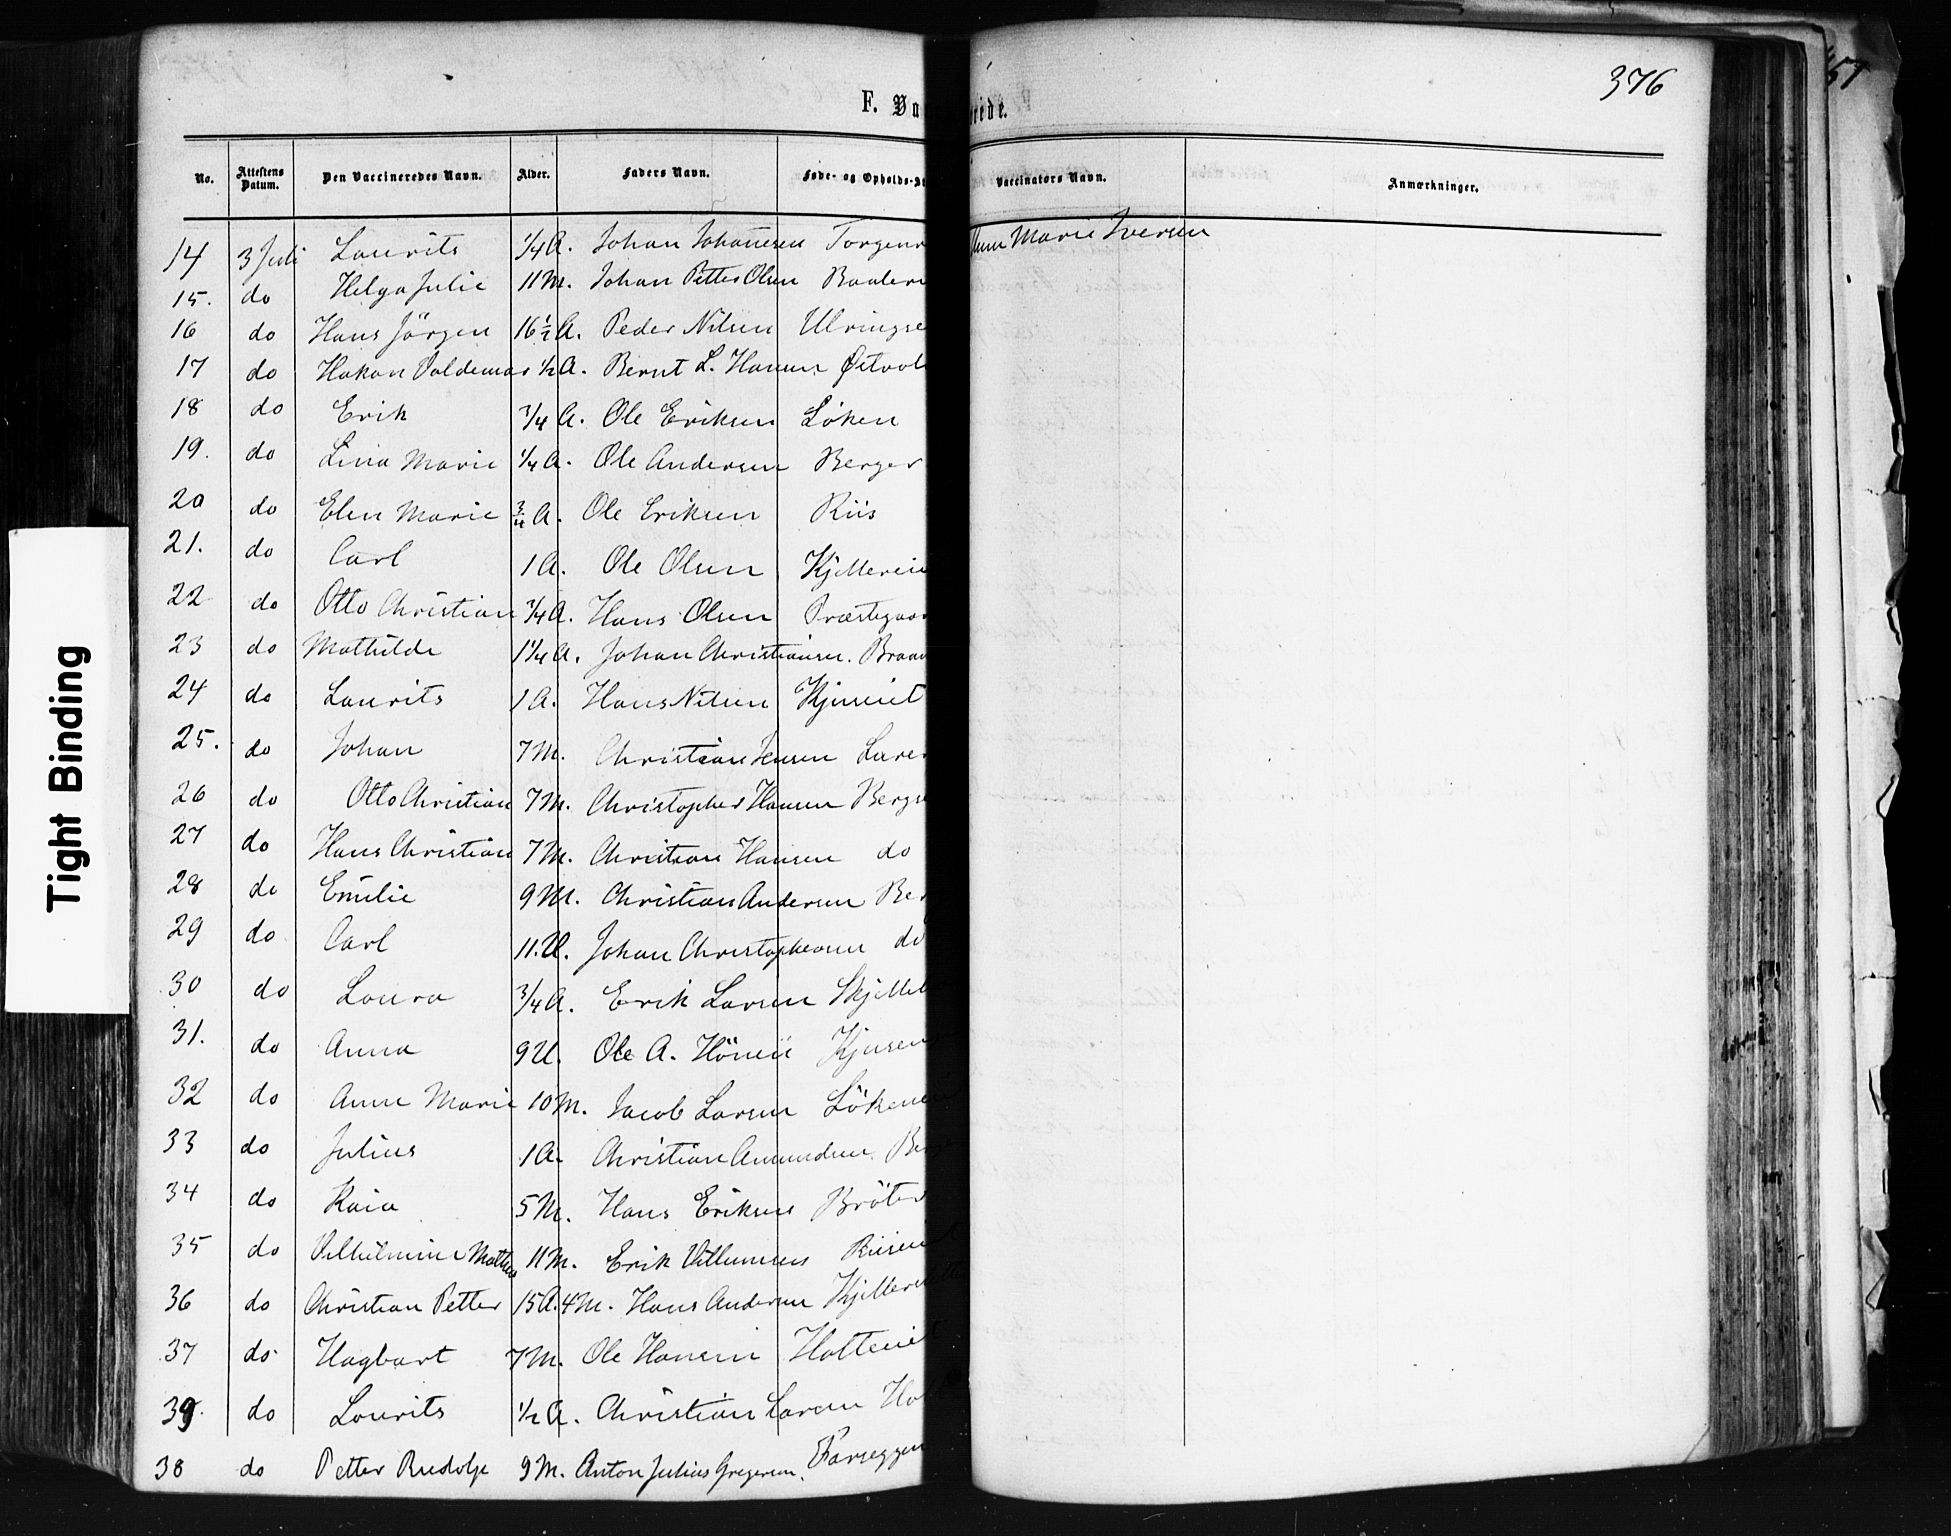 376
57
F. Va rede.
No. Attestens Datum. Den Vaccineredes Navn. Alder. Faders Navn. Føde- og Opholds-St Vaccinators Navn. Anmærkninger.
14 3 Juli Laurits 1/4 A. Johan Johannesen Torgenr Marie Iversen
15. do Helga Julie 11 M. Johan Petter Olsen Baalere
16 do Hans Jörgen 16 1/2 A. Peder Nilsen Ulringse
17 do Hakon Valdemar 1/2 A. Bernt L. Hansen Østvol
18 do Erik 3/4 A. Ole Eriksen Löken
19. do Lina Marie 1/4 A. Ole Andersen Berger
20 do Elen Marie 3/4 A. Ole Eriksen Riis
21. do Carl 1 A. Ole Olsen Kjellereie
22 do Otto Christian 3/4 A. Hans Olsen Præstegaar
23 do Mathilde 1 1/4 A. Johan Christiansen. Braa
24 do Laurits 1 A. Hans Nilsen Kjuseiet
25. do Johan 7 M. Christian Jensen Larer
26 do Otto Christian 7 M. Christopher Hansen Bergs
27 do Hans Christian 7 M. Christian Hansen do
28 do Emilie 9 M. Christian Andersen Ber
29 do Carl 11. U. Johan Christophersen do
30 do Laura 3/4 A. Erik Larsen Skjelleb
31. do Anna 9 U. Ole A. Kjusen
32 do Anne Marie 10 M. Jacob Larsen Lökenei
33 do Julius 1 A. Christian Amundsen. Be
34 do Kaia 5 M. Hans Eriksen Bröter
35 do Vilhelmine Mathea 11 M. Erik Villumsen Riiseiet
36 do Christian Petter 15 A. 4 M. Hans Andersen Kjellere
37 do Hagbart 7 M. Ole Hansen Holteiet
39. do Lourits 1/2 A. Christian Larsen Hol
38 do Petter Rudolf 9 M. Anton Julius Gregersen. Farseggen
Tight Binding